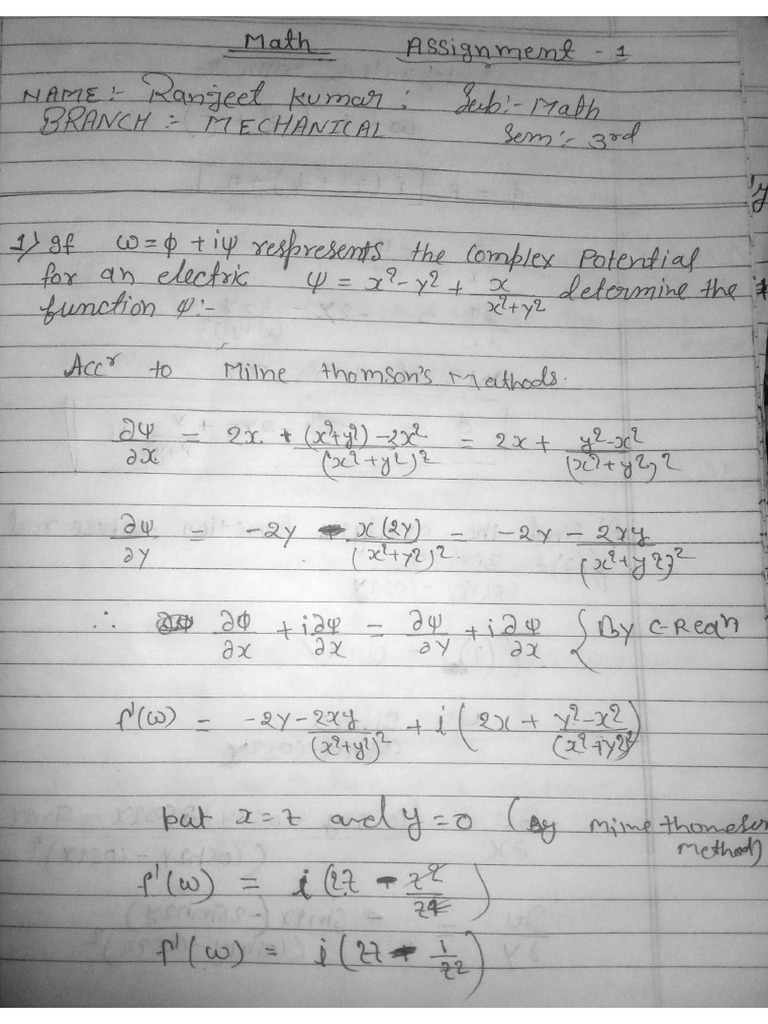 Math Assignment - 1
NAME:- Ranjeet Kumar : Sub:- Math
BRANCH:- MECHANICAL Sem:- 3rd
1) If ω = φ + iψ respresents the complex Potential
for an electric ψ = x² - y² + x/(x²+y²) determine the
function φ:-
Accʳ to Milne thomson's Meathods.
∂ψ/∂x = 2x + ((x²+y²) - 2x²)/(x²+y²)² = 2x + (y²-x²)/(x²+y²)²
∂ψ/∂y = -2y - x(2y)/(x²+y²)² = -2y - 2xy/(x²+y²)²
∴ ∂φ/∂x + i∂ψ/∂x = ∂ψ/∂y + i∂ψ/∂x { By C-Reqn
f'(ω) = -2y - 2xy/(x²+y²)² + i(2x + (y²-x²)/(x²+y²)²)
put x = z and y = 0 (By Mime thomeson
method)
f'(ω) = i(2z - z²/z⁴)
f'(ω) = i(2z - 1/z²)